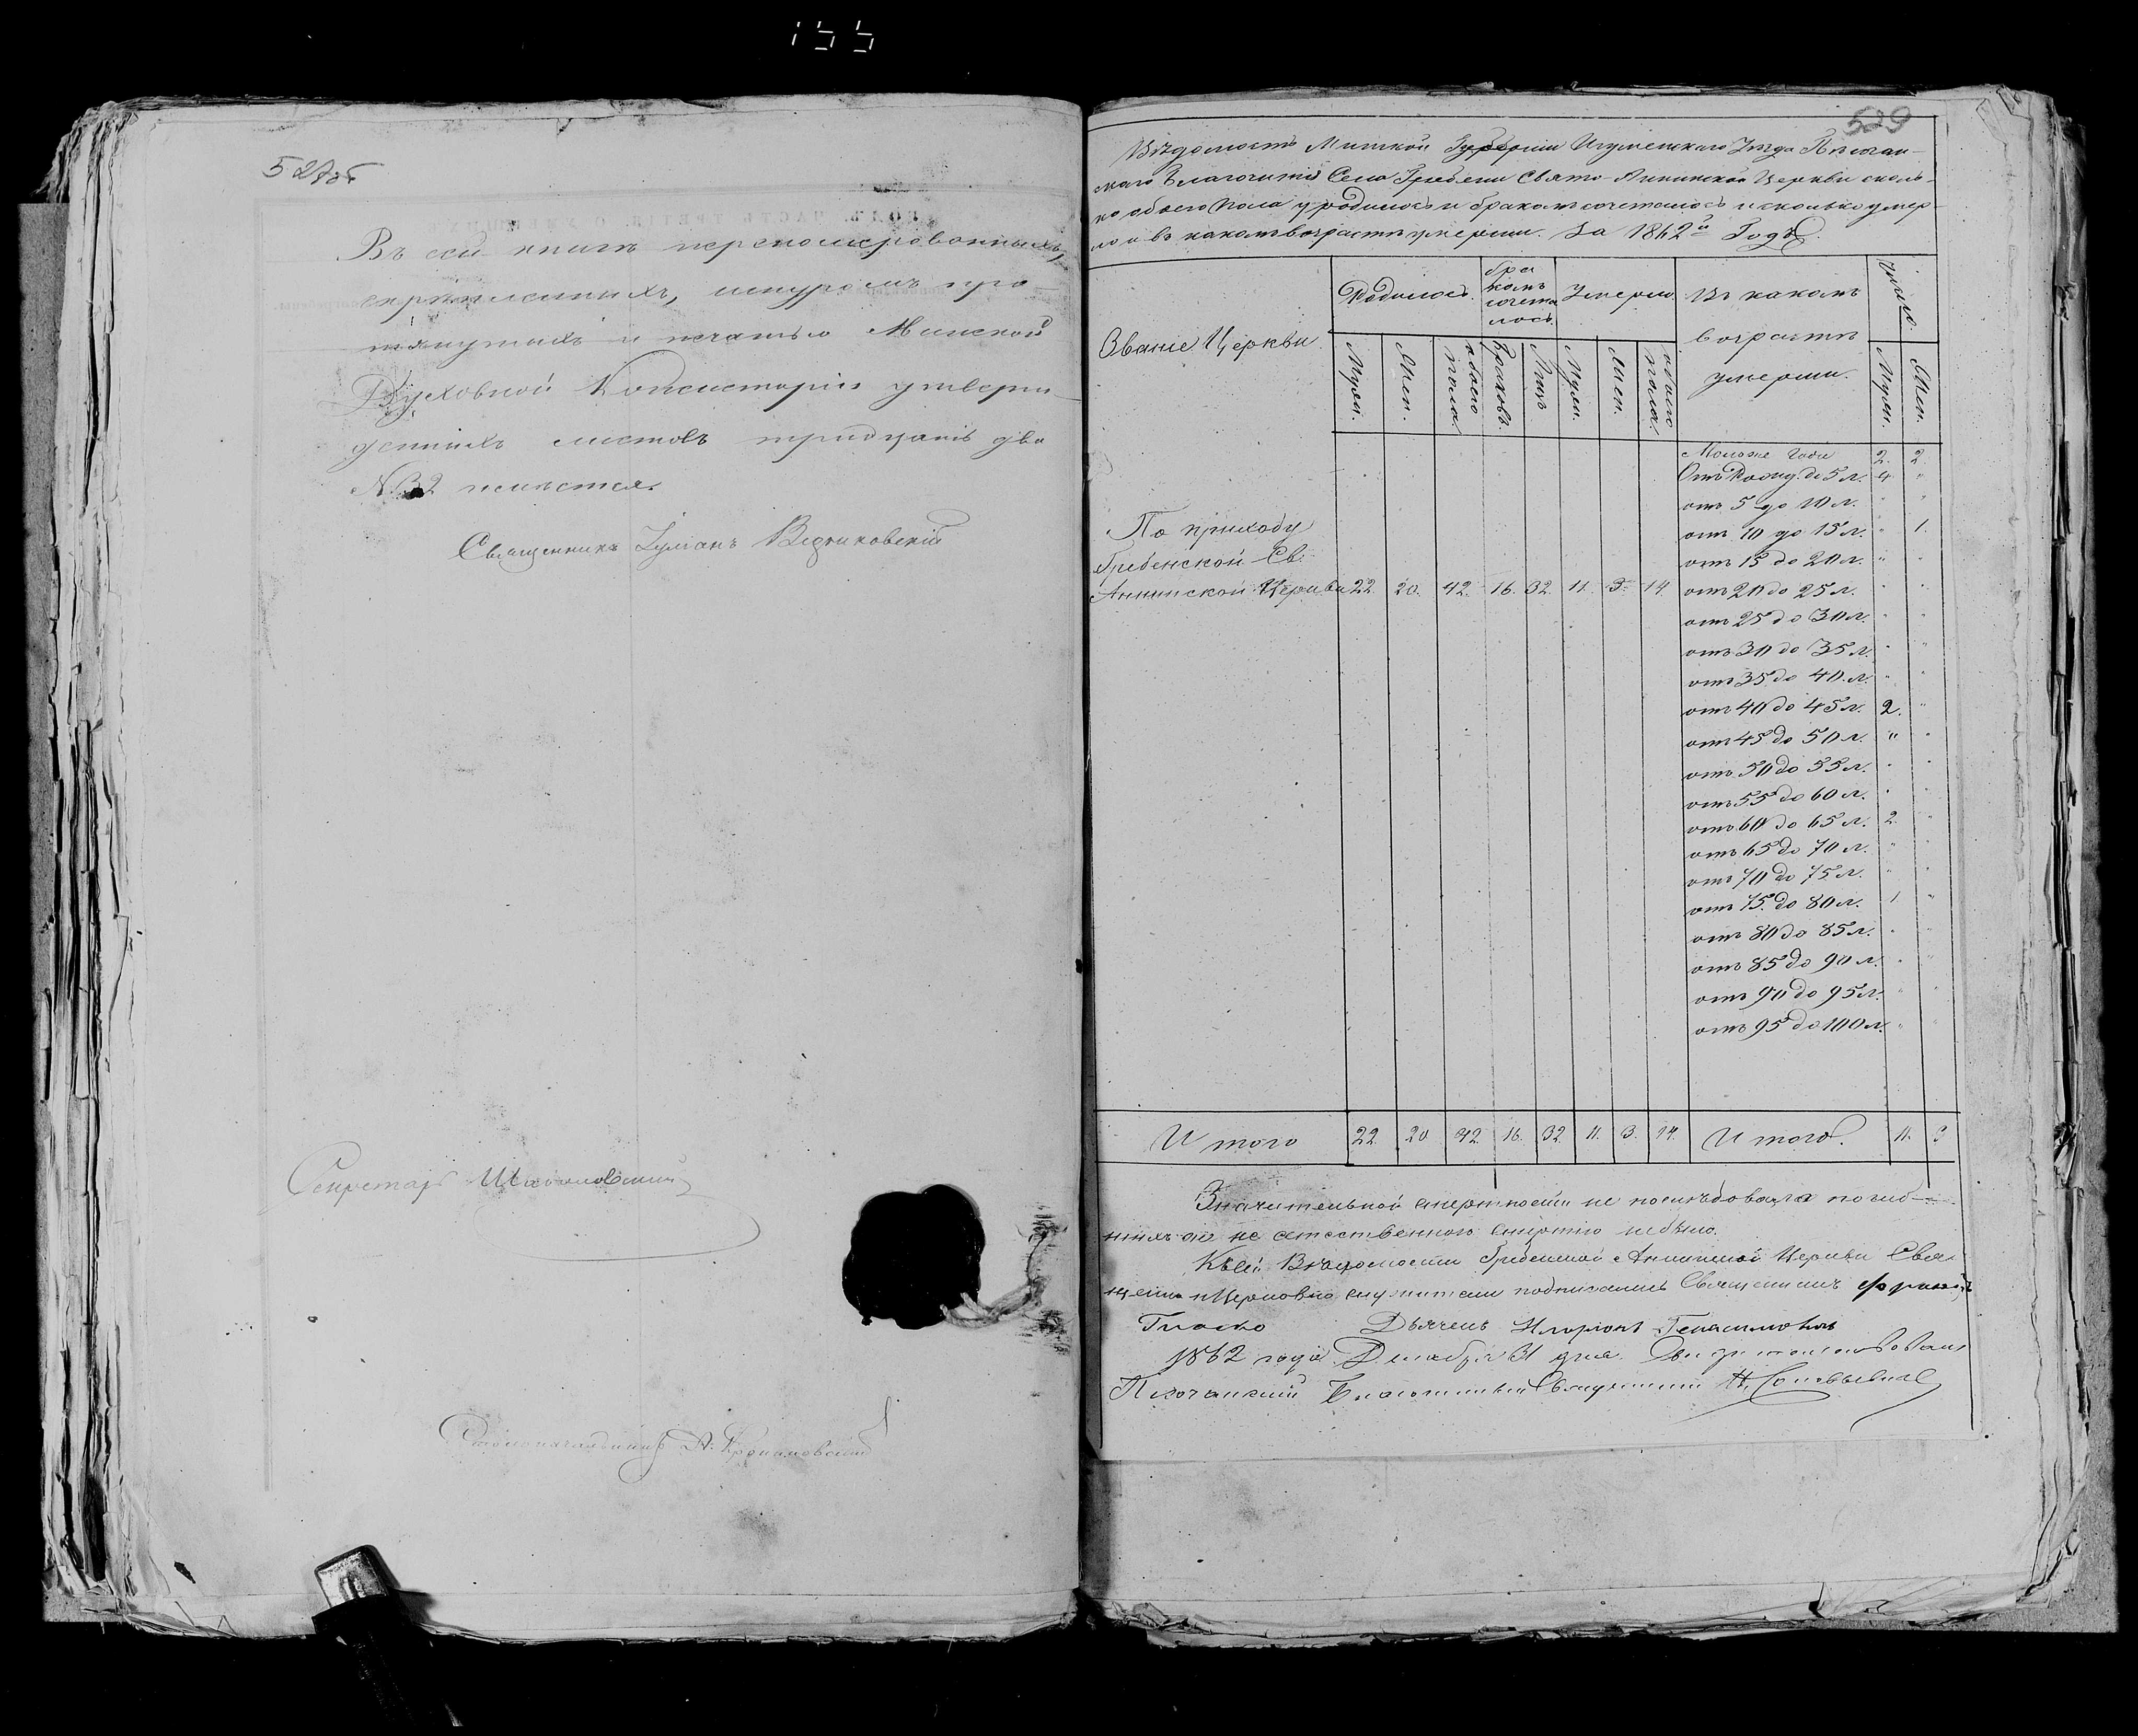 155
527об
Въ сей книгѣ переномерованныхъ,
скрѣпленныхъ, шнуромъ про-
тянутыхъ и печатью Минской
Духовной Консисторіи утверж-
денныхъ листовъ тридцать два
№ 32 имѣется.
Священникъ Іуліанъ
Секретарь
Столоначальникъ А.
529
Вѣдомость Минской Губерніи Игуменскаго Уѣзда
скаго Благочинія Села Гребени Свято-Аннинской Церкви сколь-
ко обоего пола уродилось и бракомъ сочеталось и сколько умер-
ло и въ какомъ возрастѣ умерли. За 1862й Годъ.
Званіе Церкви
Родилось.
Муж.
Жен.
обоего пола
бракомъ сочеталось.
Браковъ.
Лицъ
Умерло.
Муж.
Жен.
обоего пола
Въ какомъ
возрастѣ
умерли.
Число.
Муж.
Жен.
Моложе Года 2. 2.
Отъ Году до 5 л. 4 "
отъ 5 до 10 л. " "
отъ 10 до 15 л. " 1.
отъ 15 до 20 л. " "
По приходу
Гребенской Св.
Аннинской Церкви 22. 20. 42. 16. 32. 11. 3. 14.
отъ 20 до 25 л. " "
отъ 25 до 30 л. " "
отъ 30 до 35 л. " "
отъ 35 до 40 л. " "
отъ 40 до 45 л. 2. "
отъ 45 до 50 л. " "
отъ 50 до 55 л. " "
отъ 55 до 60 л. " "
отъ 60 до 65 л. 2. "
отъ 65 до 70 л. " "
отъ 70 до 75 л. " "
отъ 75 до 80 л. 1 "
отъ 80 до 85 л. " "
отъ 85 до 90 л. " "
отъ 90 до 95 л. " "
отъ 95 до 100 л. " "
Итого 22. 20. 42. 16. 32. 11. 3. 14. Итого. 11. 3
Значительной смертности не послѣдовало погиб-
шихъ не естественною смертію небыло.
Къ сей Вѣдомости Гребенской Аннинской Церкви Свя-
щенно и Церковно служители подписались Священникъ
Гласко Дьячекъ Иларіонъ
1862 года Декабря 31 дня. Свидѣтельствовалъ
Благочинный Священникъ